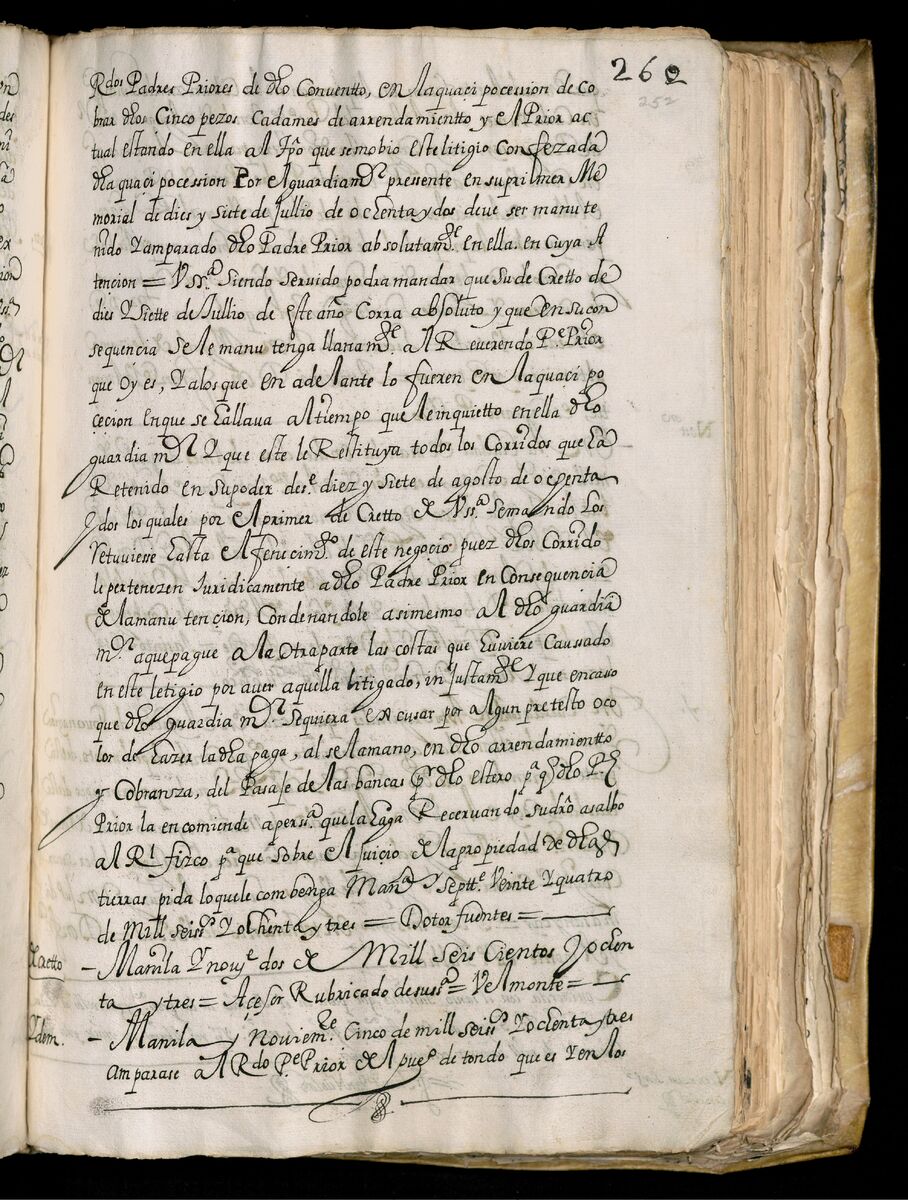 262
252
Rdos Padres Priores de dho Conventto, en la quaçi pocession de co
brar dhos Cinco pezos Cadames de arrendamientto y el Prior ac
tual estando en ella al tpo que se mobio este litigio Confezada
dha quaçi pocession Por el guardiam.n pressente en su primer Me
morial de dies y siete de Jullio de ochenta y dos deve ser manute
nido Y amparado dho Padre Prior absolutam.te en ella. en Cuya A
tencion = V ss.a siendo servido podra mandar que su de Cretto de
dies Y siette de Jullio de este año Corra absoluto y que en su con
sequencia se le manu tenga llanam.te al Reverendo P.e Prior
que oy es, Y a los que en adelante lo fueren en la quaçi po
çeçion en que se hallava al tiempo que le inquietto en ella dho
guardia m.n Y que este le Restituya todos los Corridos que ha
Retenido en su poder des.e diez y siete de agosto de ochenta
y dos los quales por el primer de Cretto de V ss.a se mando los
retuviesse hasta el feneçim.to de este negocio puez dhos Corrido
le pertenezen Juridicamente a dho Padre Prior en Consequencia
de la manu tençion, Condenandole asimesmo al dho guardia
m.n a que pague a la Otra parte las costas que huviere Caussado
en este letigio por aver aquella litigado, in justam.te Y que en caso
que dho guardia m.n se quiera excusar por algun pretesto o co
lor de hazer la dha paga, al se la mano, en dho arrendamientto
y Cobransa, del Pasaje de las bancas por dho estero p.a q dho P.e
Prior la encomiende a pers.a que la haga Recervando su dro a salbo
al R.l fizco p.a que sobre el juicio de la propiedad de dhas
tierras pida lo que le combenga Man.a y Sептt.e Veinte Y quatro
de Mill seis.s Y ochenta y tres = Dotor fuentes =
Decretto - Manila Y nov.e dos de Mill Seis Cientos Y ochen
ta y tres = Açesor Rubricado de su ss.a = Velmonte =
Ydem. - Manila y Noviem.re Cinco de mill seis.s Y ochenta y tres
amparase al Rdo P.e Prior del pue.o de tondo que es Y en los